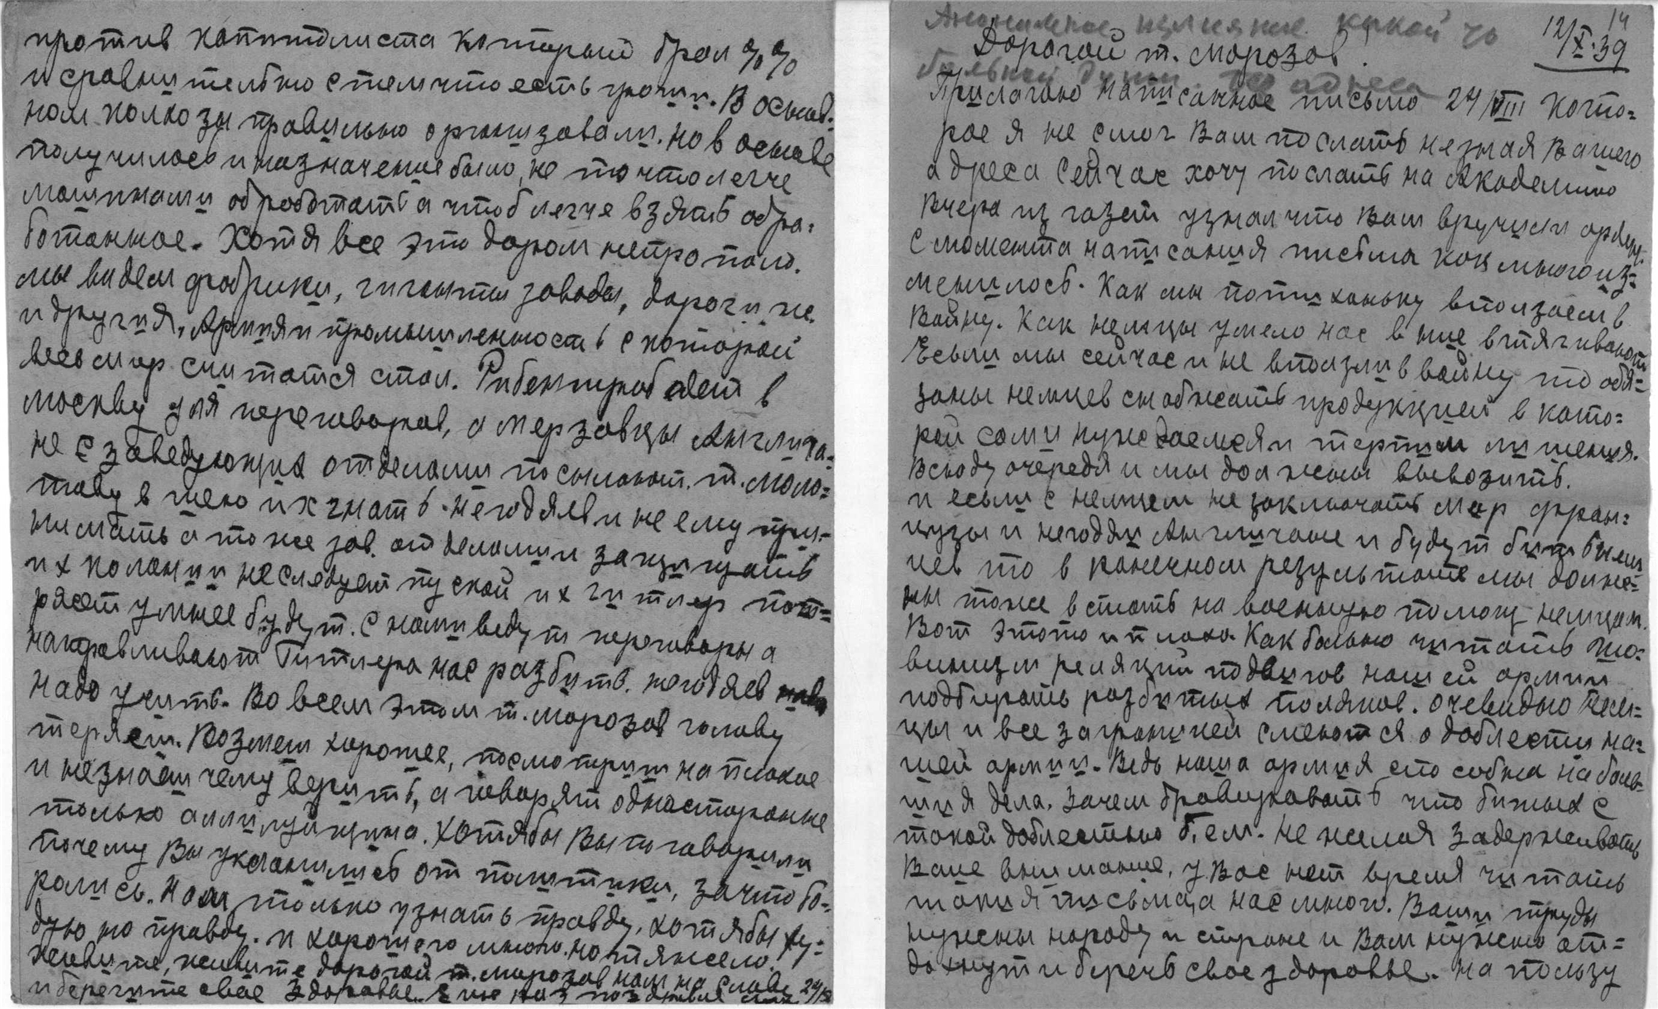 против капиталиста который брал %%
и сравнительно с тем что есть грош. В основ-
ном колхозы правильно организовали. но в основе
получилось и назначение было, не то что легче
машинами обработать а чтоб легче взять обра-
ботанное. Хотя все это даром не пропало.
мы видем фабрики, гиганты заводы, дороги не
и другия, Армия и промышленность с которой
весь мир считатся стал. Рибентроб едет в
москву для переговоров, а мерзавцы Англича-
не с заведующих отделами посылают. т. моло-
тову в шею их гнать. негодяев и не ему при-
нимать а то же зав. отделами и защищать
их колонии не следует пускай их гитлер потя-
ряет умнее будут. с нами ведут переговоры а
направливают Гитлера нас разбить. негодяев
надо учить. Во всем этом т. морозов голову
теряем. Возмем хорошее, посмотрим на плохое
и незнаем чему верить, а говорят одностаронне
только аллилуйщина. Хотябы Вы поговорили
почему Вы уклонились от политики, за что бо-
ролись. Нам только узнать правду, хотябы ху-
дую но правду. и хорошего много. но тяжело.
Живите, живите дорогой т. морозов нам на славу
и берегите свое здоровье. 24/
Анонимное
12/X.39
14
Дорогой т. Морозов!
без адреса
Прилагаю написанное письмо 24/VIII кото-
рое я не смог Вам послать не зная Вашего
адреса Сейчас хочу послать на Академию
Вчера из газет узнал что Вам вручили орден.
с момента написания письма как много из-
менилось. Как мы потихоньку вползаем в
Войну. Как немцы умело нас в нее втягивают
Есьли мы сейчас и не вползли в войну то обя-
заны немцев снабжать продукцией в кото-
рой сами нуждаемся и терпим лишения.
Всюду очередя и мы должны вывозить.
и есьли с немцем не заключать мир фран-
цузы и негодяи Англичане и будут бит
цев то в конечном результате мы долж-
ны тоже встать на военную помощ немцам.
Вот этото и плохо. Как больно читать
реляций подвигов нашей армии
подбирать разбитых поляков. очевидно нем-
цы и все заграницей смеются о доблести на-
шей армии. Ведь наша армия способна на боль-
шия дела. Зачем бравировать что битых с
такой доблестью бъем. не желая задерживать
Ваше внимание, у Вас нет время читать
такия письма, а нас много. Ваши труды
нужны народу и стране и Вам нужно от-
дохнут и беречь свое здоровье. на пользу